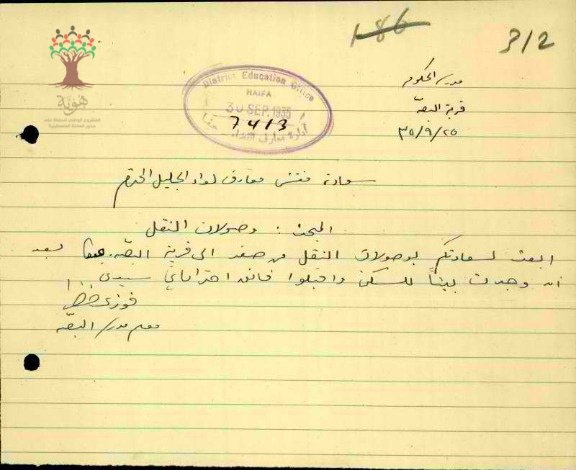 186
3/2
هوية
District Education Office
HAIFA
30 SEP. 1935
7413
مدرسة الحكومة
قرية البصة
٣٥/٩/٢٥
سعادة مفتش معارف لواء الجليل المحترم
المبحث : وصولات النقل
ابعث لسعادتكم بوصولات النقل من صفد الى قرية البصة بعد
ان وجدت بيتاً للسكنى واقبلوا فائق احتراماتي سيدي
فوزي
معلم مدرسة البصة